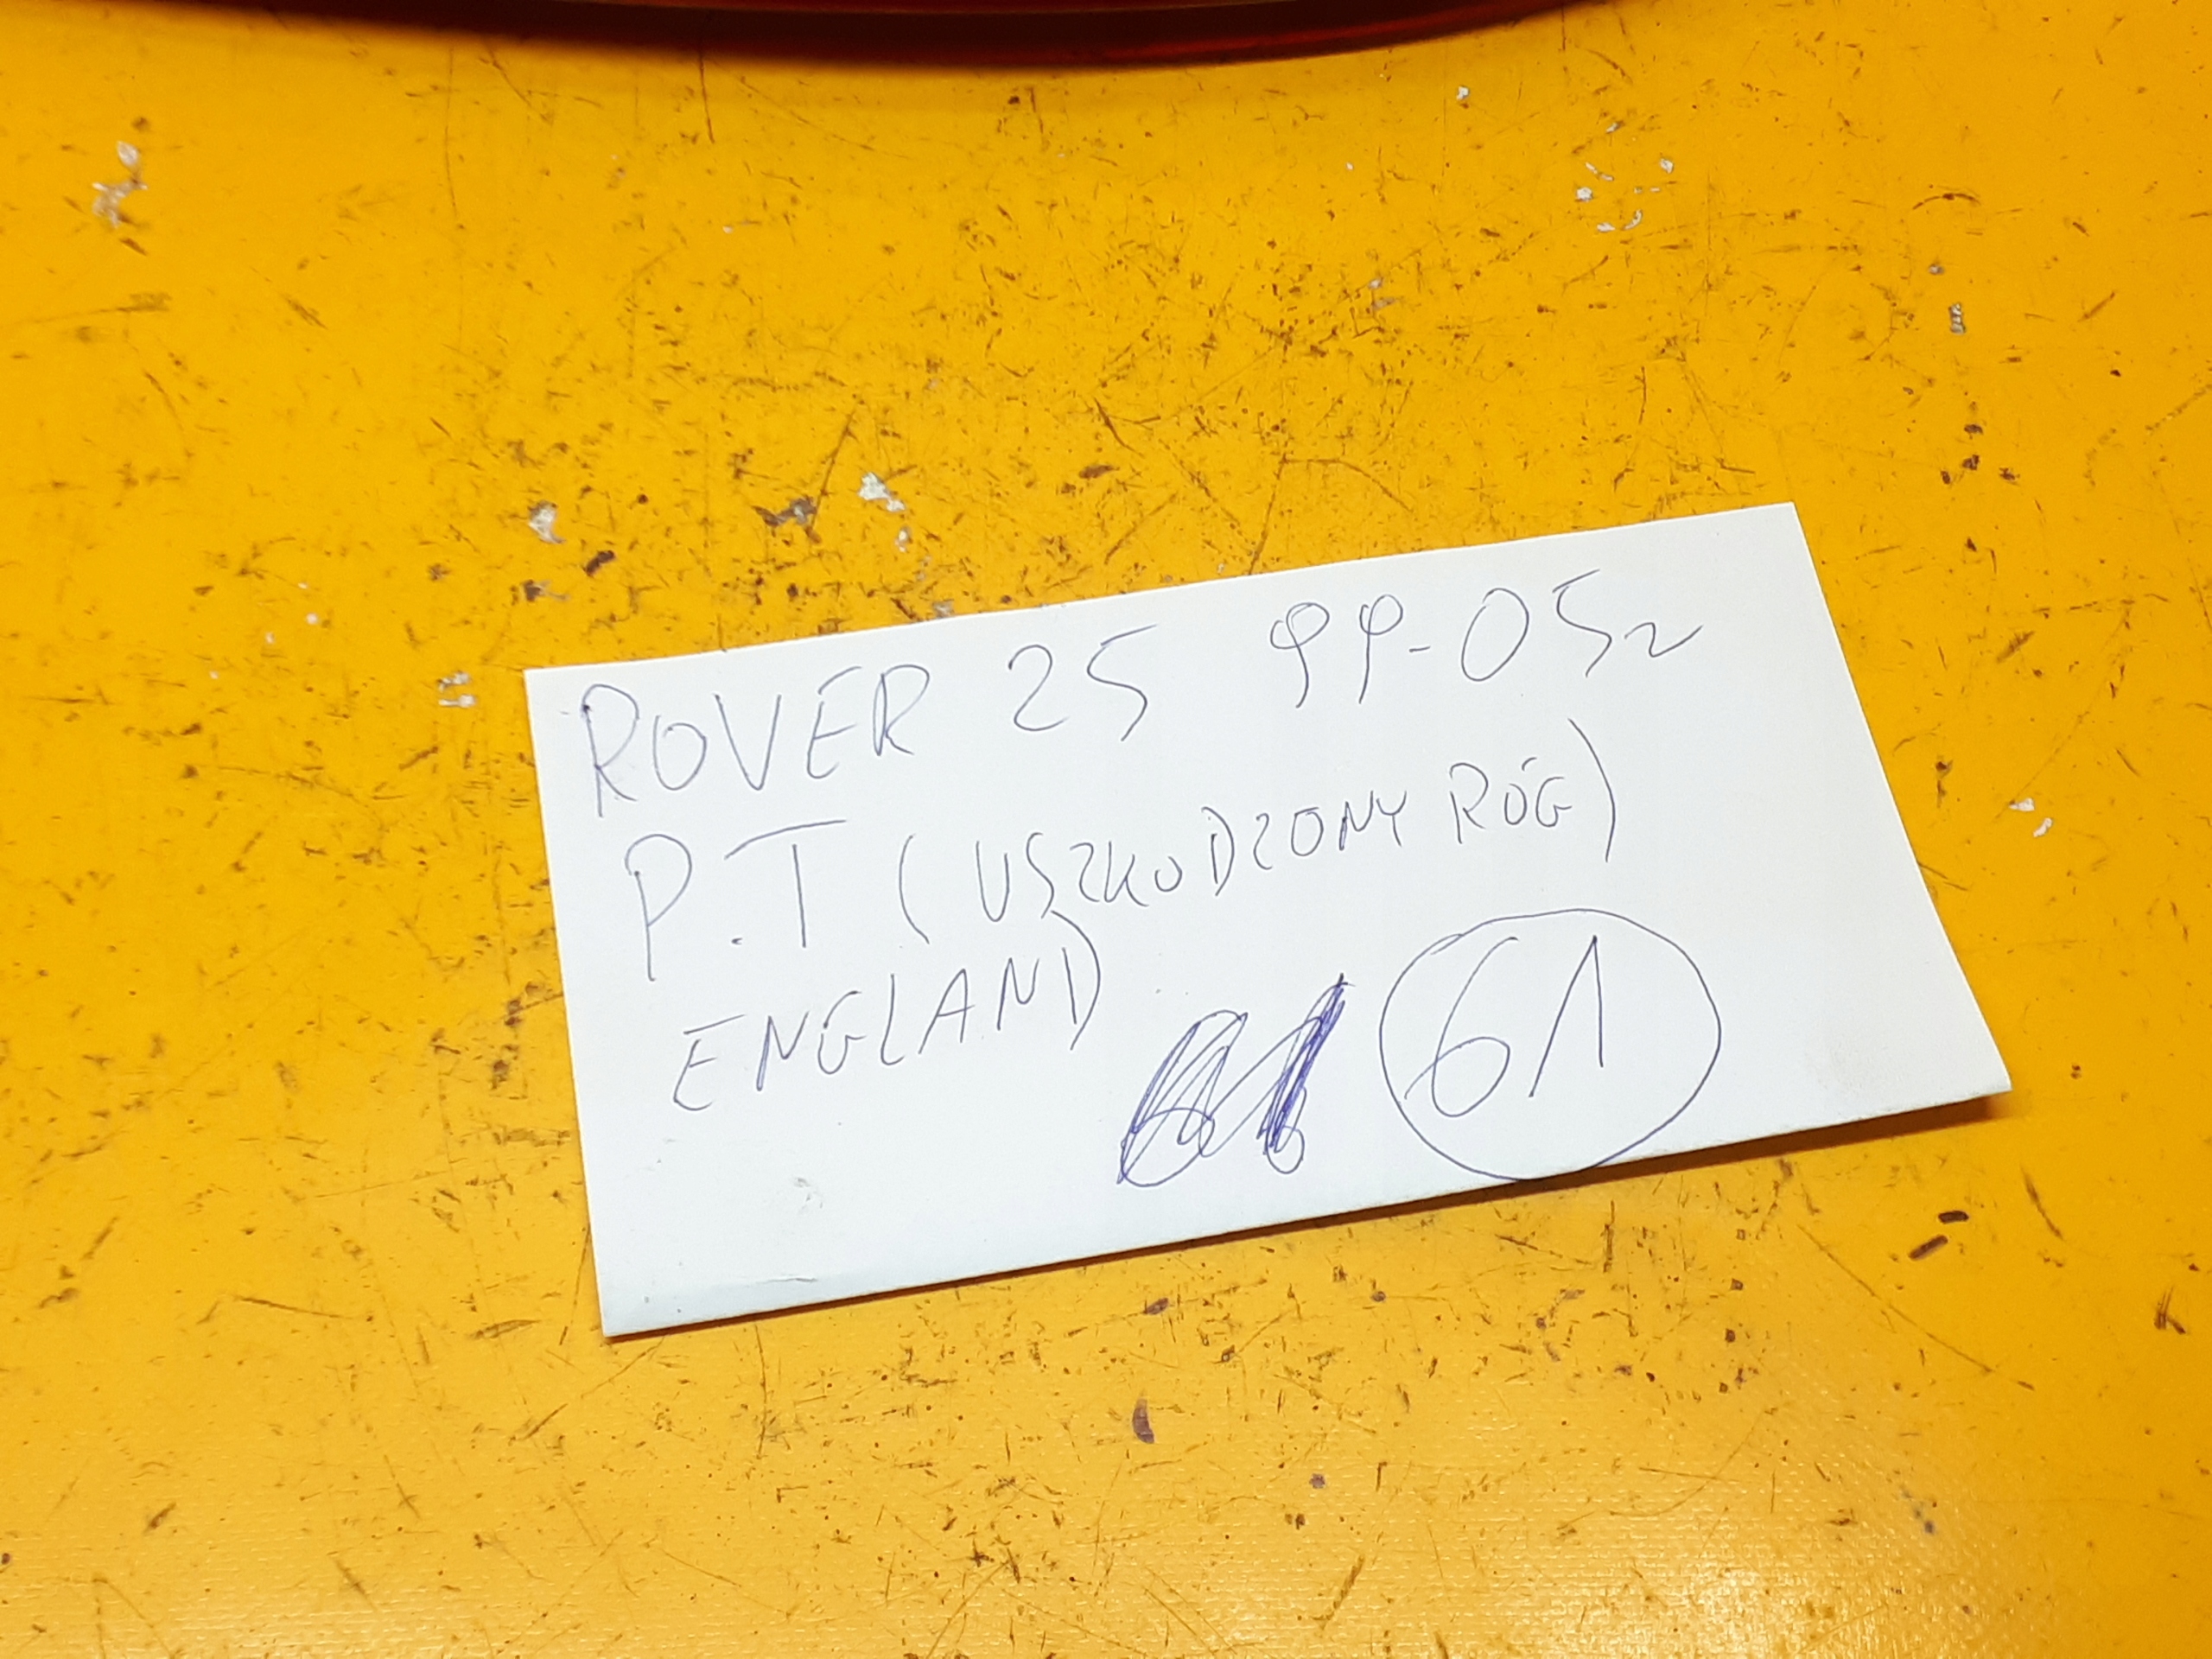 ROVER 25 99-05r
P.T (USZKODZONY RÓG)
ENGLAND
61